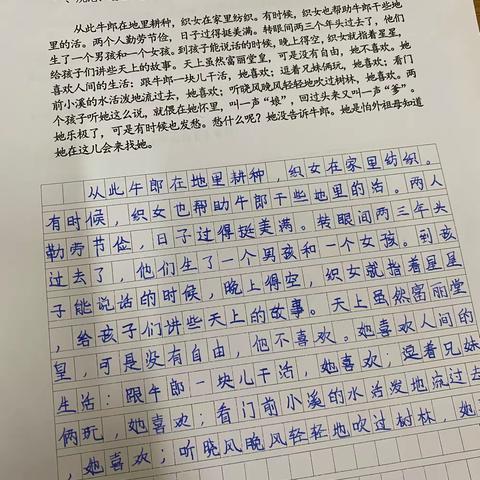 从此牛郎在地里耕种，织女在家里纺织。有时候，织女也帮助牛郎干些地
里的活。两个人勤劳节俭，日子过得挺美满。转眼间两三个年头过去了，他们
生了一个男孩和一个女孩。到孩子能说话的时候，晚上得空，织女就指着星星，
给孩子们讲些天上的故事。天上虽然富丽堂皇，可是没有自由，她不喜欢。她
喜欢人间的生活：跟牛郎一块儿干活，她喜欢；逗着兄妹俩玩，她喜欢；看门
前小溪的水活泼地流过去，她喜欢；听晓风晚风轻轻地吹过树林，她喜欢。两
个孩子听她这么说，就偎在她怀里，叫一声“娘”，回过头来又叫一声“爹”。
她乐极了，可是有时候也发愁。愁什么呢？她没告诉牛郎。她是怕外祖母知道
她在这儿会来找她。
从此牛郎在地里耕种，织女在家里纺织。
有时候，织女也帮助牛郎干些地里的活。两人
勤劳节俭，日子过得挺美满。转眼间两三年头
过去了，他们生了一个男孩和一个女孩。到孩
子能说话的时候，晚上得空，织女就指着星星
，给孩子们讲些天上的故事。天上虽然富丽堂
皇，可是没有自由，他不喜欢。她喜欢人间的
生活：跟牛郎一块儿干活，她喜欢；逗着兄妹
俩玩，她喜欢；看门前小溪的水活发地流过去
，她喜欢；听晓风晚风轻轻地吹过树林，她